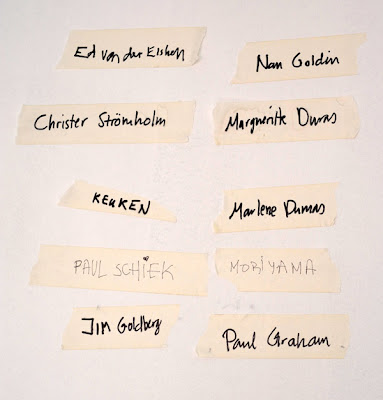 Ed van der Elsken
Nan Goldin
Christer Strömholm
Marguerite Duras
KEUKEN
Marlene Dumas
PAUL SCHIEK
MORIYAMA
Jim Goldberg
Paul Graham